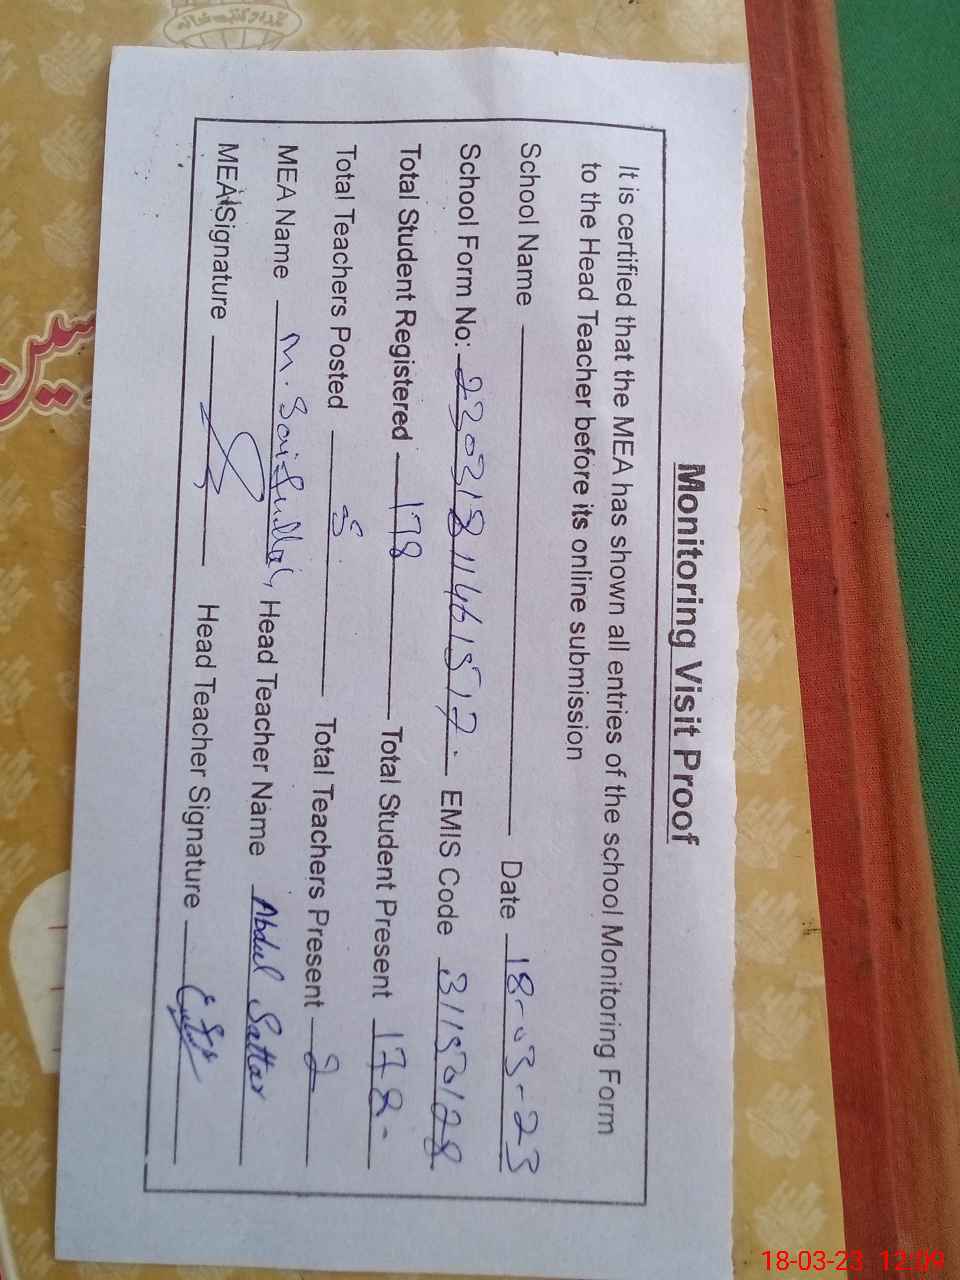 Monitoring Visit Proof
It is certified that the MEA has shown all entries of the school Monitoring Form
to the Head Teacher before its online submission
School Name Date 18-03-23
School Form No: 23031811461517. EMIS Code 31150128
Total Student Registered 178 Total Student Present 172-
Total Teachers Posted 5 Total Teachers Present 2
MEA Name M. Saifullah Head Teacher Name Abdul Sattar
MEA Signature Head Teacher Signature
18-03-23 12:09